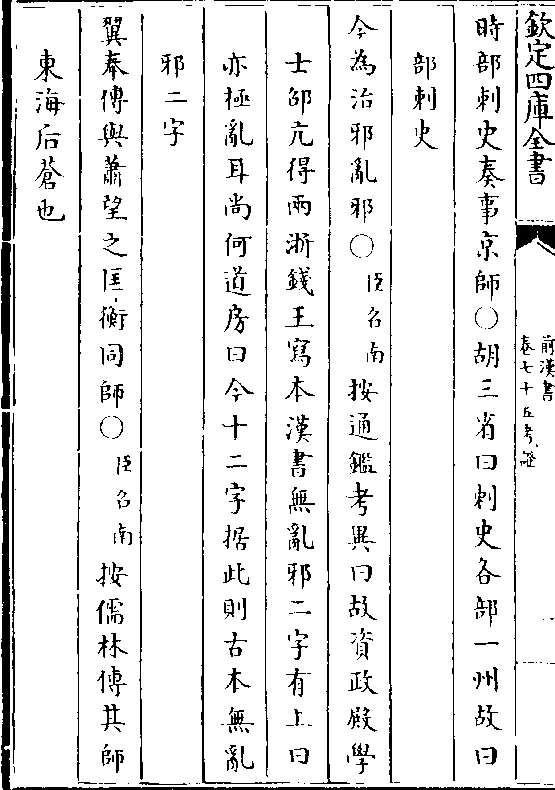 欽定四庫全書
前漢書
卷七十五考證
時部刺史奏事京師○胡三省曰刺史各部一州故曰
部刺史
今為治邪亂邪○臣召南按通鑑考異曰故資政殿學
士邵亢得兩浙錢王寫本漢書無亂邪二字有上曰
亦極亂耳尚何道房曰今十二字据此則古本無亂
邪二字
翼奉傳與蕭望之匡衡同師○臣召南按儒林傳其師
東海后蒼也